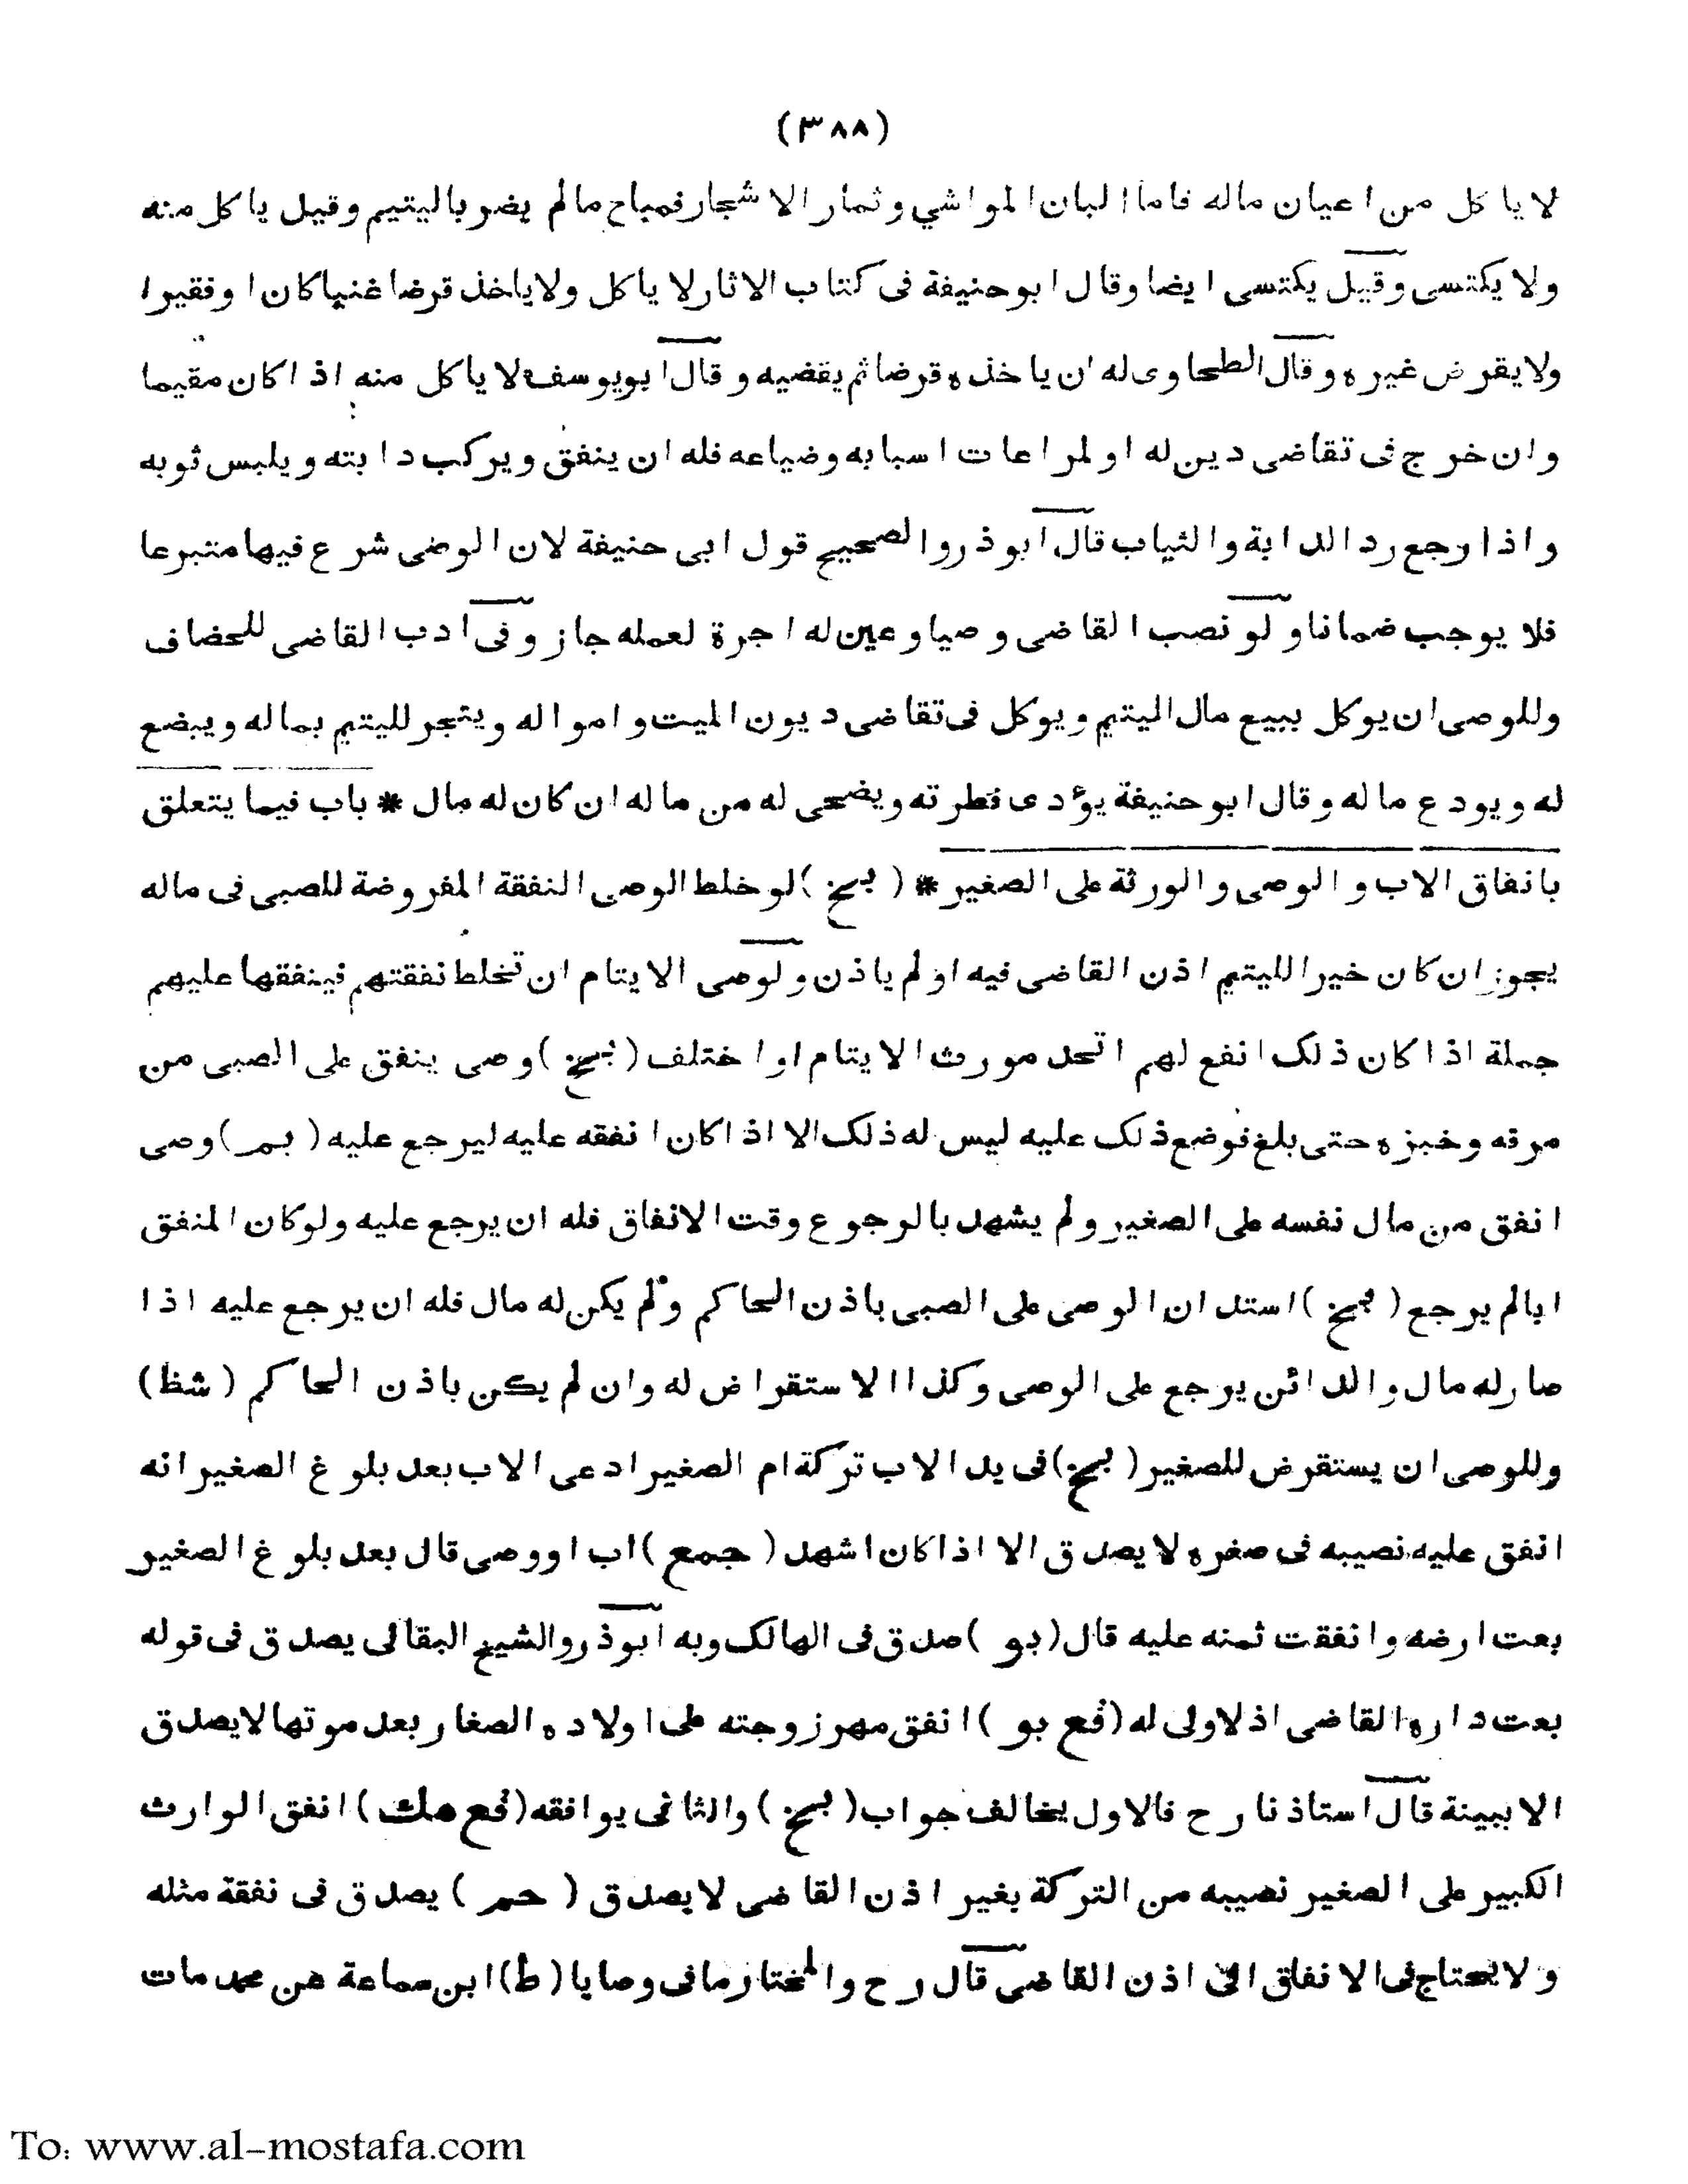 (٣٨٨)
لا ياكل من اعيان ماله فاما البان المواشي وثمار الاشجار فمباح مالم يضر باليتيم وقيل ياكل منه
ولا يكتسى وقيل يكتسى ايضا وقال ابوحنيفة فى كتاب الاثار لا ياكل ولا ياخذ قرضا غنيا كان او فقيرا
ولا يقرض غيره وقال الطحاوى له ان ياخذه قرضا ثم يقضيه وقال ابويوسف لا ياكل منه اذا كان مقيما
وان خرج فى تقاضى دين له او لمراعات اسبابه وضياعه فله ان ينفق ويركب دابته ويلبس ثوبه
واذا رجع رد الدابة والثياب قال ابوذر والصحيح قول ابى حنيفة لان الوصى شرع فيها متبرعا
فلا يوجب ضمانا ولو نصب القاضى وصيا وعين له اجرة لعمله جاز وفى ادب القاضى للخصاف
وللوصى ان يوكل ببيع مال اليتيم ويوكل فى تقاضى ديون الميت وامواله ويتجر لليتيم بماله ويبضع
له ويودع ماله وقال ابوحنيفة يؤدى فطرته ويضحى له من ماله ان كان له مال * باب فيما يتعلق
بانفاق الاب والوصى والورثة على الصغير * (بخ) لو خلط الوصى النفقة المفروضة للصبى فى ماله
يجوز ان كان خيرا لليتيم اذن القاضى فيه او لم ياذن ولوصى الايتام ان تخلط نفقتهم فينفقها عليهم
جملة اذا كان ذلك انفع لهم اتحد مورث الايتام او اختلف (بخ) وصى ينفق على الصبى من
مرقه وخبزه حتى بلغ فوضع ذلك عليه ليس له ذلك الا اذا كان انفقه عليه ليرجع عليه (بم) وصى
انفق من مال نفسه على الصغير ولم يشهد بالرجوع وقت الانفاق فله ان يرجع عليه ولو كان المنفق
ابالم يرجع (بخ) استدان الوصى على الصبى باذن الحاكم ولم يكن له مال فله ان يرجع عليه اذا
صار له مال والدائن يرجع على الوصى وكذا الاستقراض له وان لم يكن باذن الحاكم (شظ)
وللوصى ان يستقرض للصغير (بخ) فى يد الاب تركة ام الصغير ادعى الاب بعد بلوغ الصغير انه
انفق عليه نصيبه فى صغره لا يصدق الا اذا كان اشهد (جمع) اب او وصى قال بعد بلوغ الصغير
بعت ارضه وانفقت ثمنه عليه قال (بو) صدق فى الهالك وبه ابوذر والشيخ البقالى يصدق فى قوله
بعت داره القاضى اذلاولى له (فع بو) انفق مهر زوجته على اولاده الصغار بعد موتها لا يصدق
الا ببينة قال استاذنا رح فالاول يخالف جواب (بخ) والثانى يوافقه (فع مك) انفق الوارث
الكبير على الصغير نصيبه من التركة بغير اذن القاضى لا يصدق (حم) يصدق فى نفقة مثله
ولا يحتاج فى الانفاق الى اذن القاضى قال رح والمختار مافى وصايا (ط) ابن سماعة عن محمد مات
To: www.al-mostafa.com